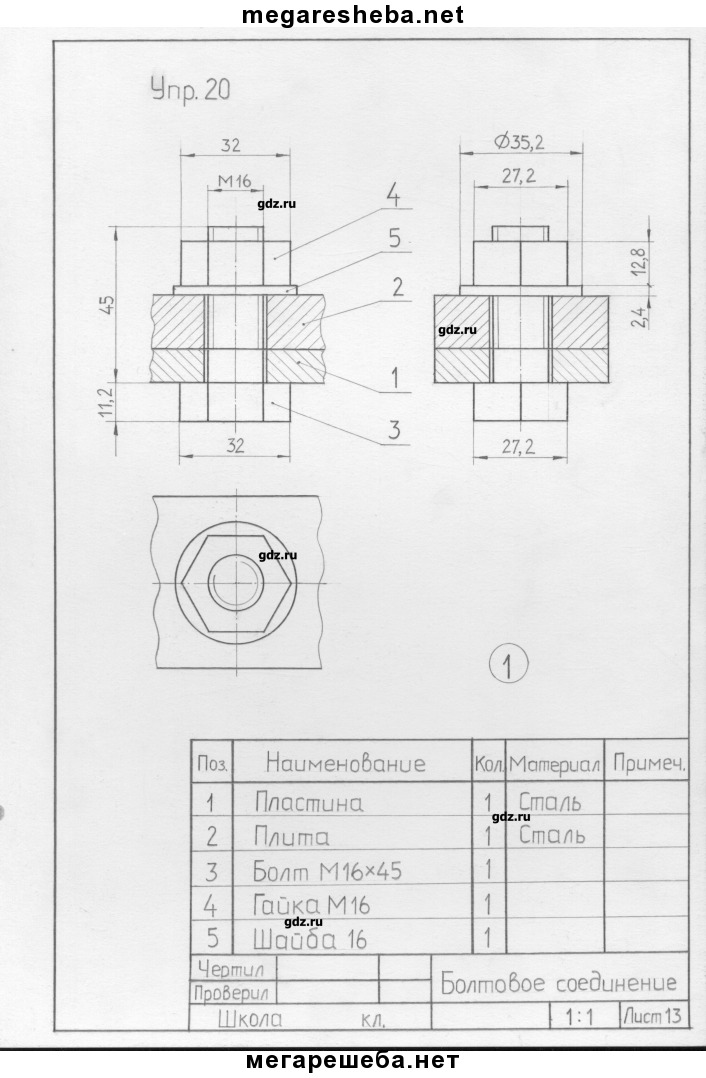 megaresheba.net
Упр. 20
32
М16
gdz.ru
45
11,2
32
4
5
2
1
3
Ø35,2
27,2
12,8
2,4
gdz.ru
27,2
gdz.ru
1
Поз. Наименование Кол. Материал Примеч.
1 Пластина 1 Сталь
gdz.ru
2 Плита 1 Сталь
3 Болт М16×45 1
4 Гайка М16 1
gdz.ru
5 Шайба 16 1
Чертил
Проверил
Болтовое соединение
Школа кл. 1:1 Лист 13
мегарешеба.нет